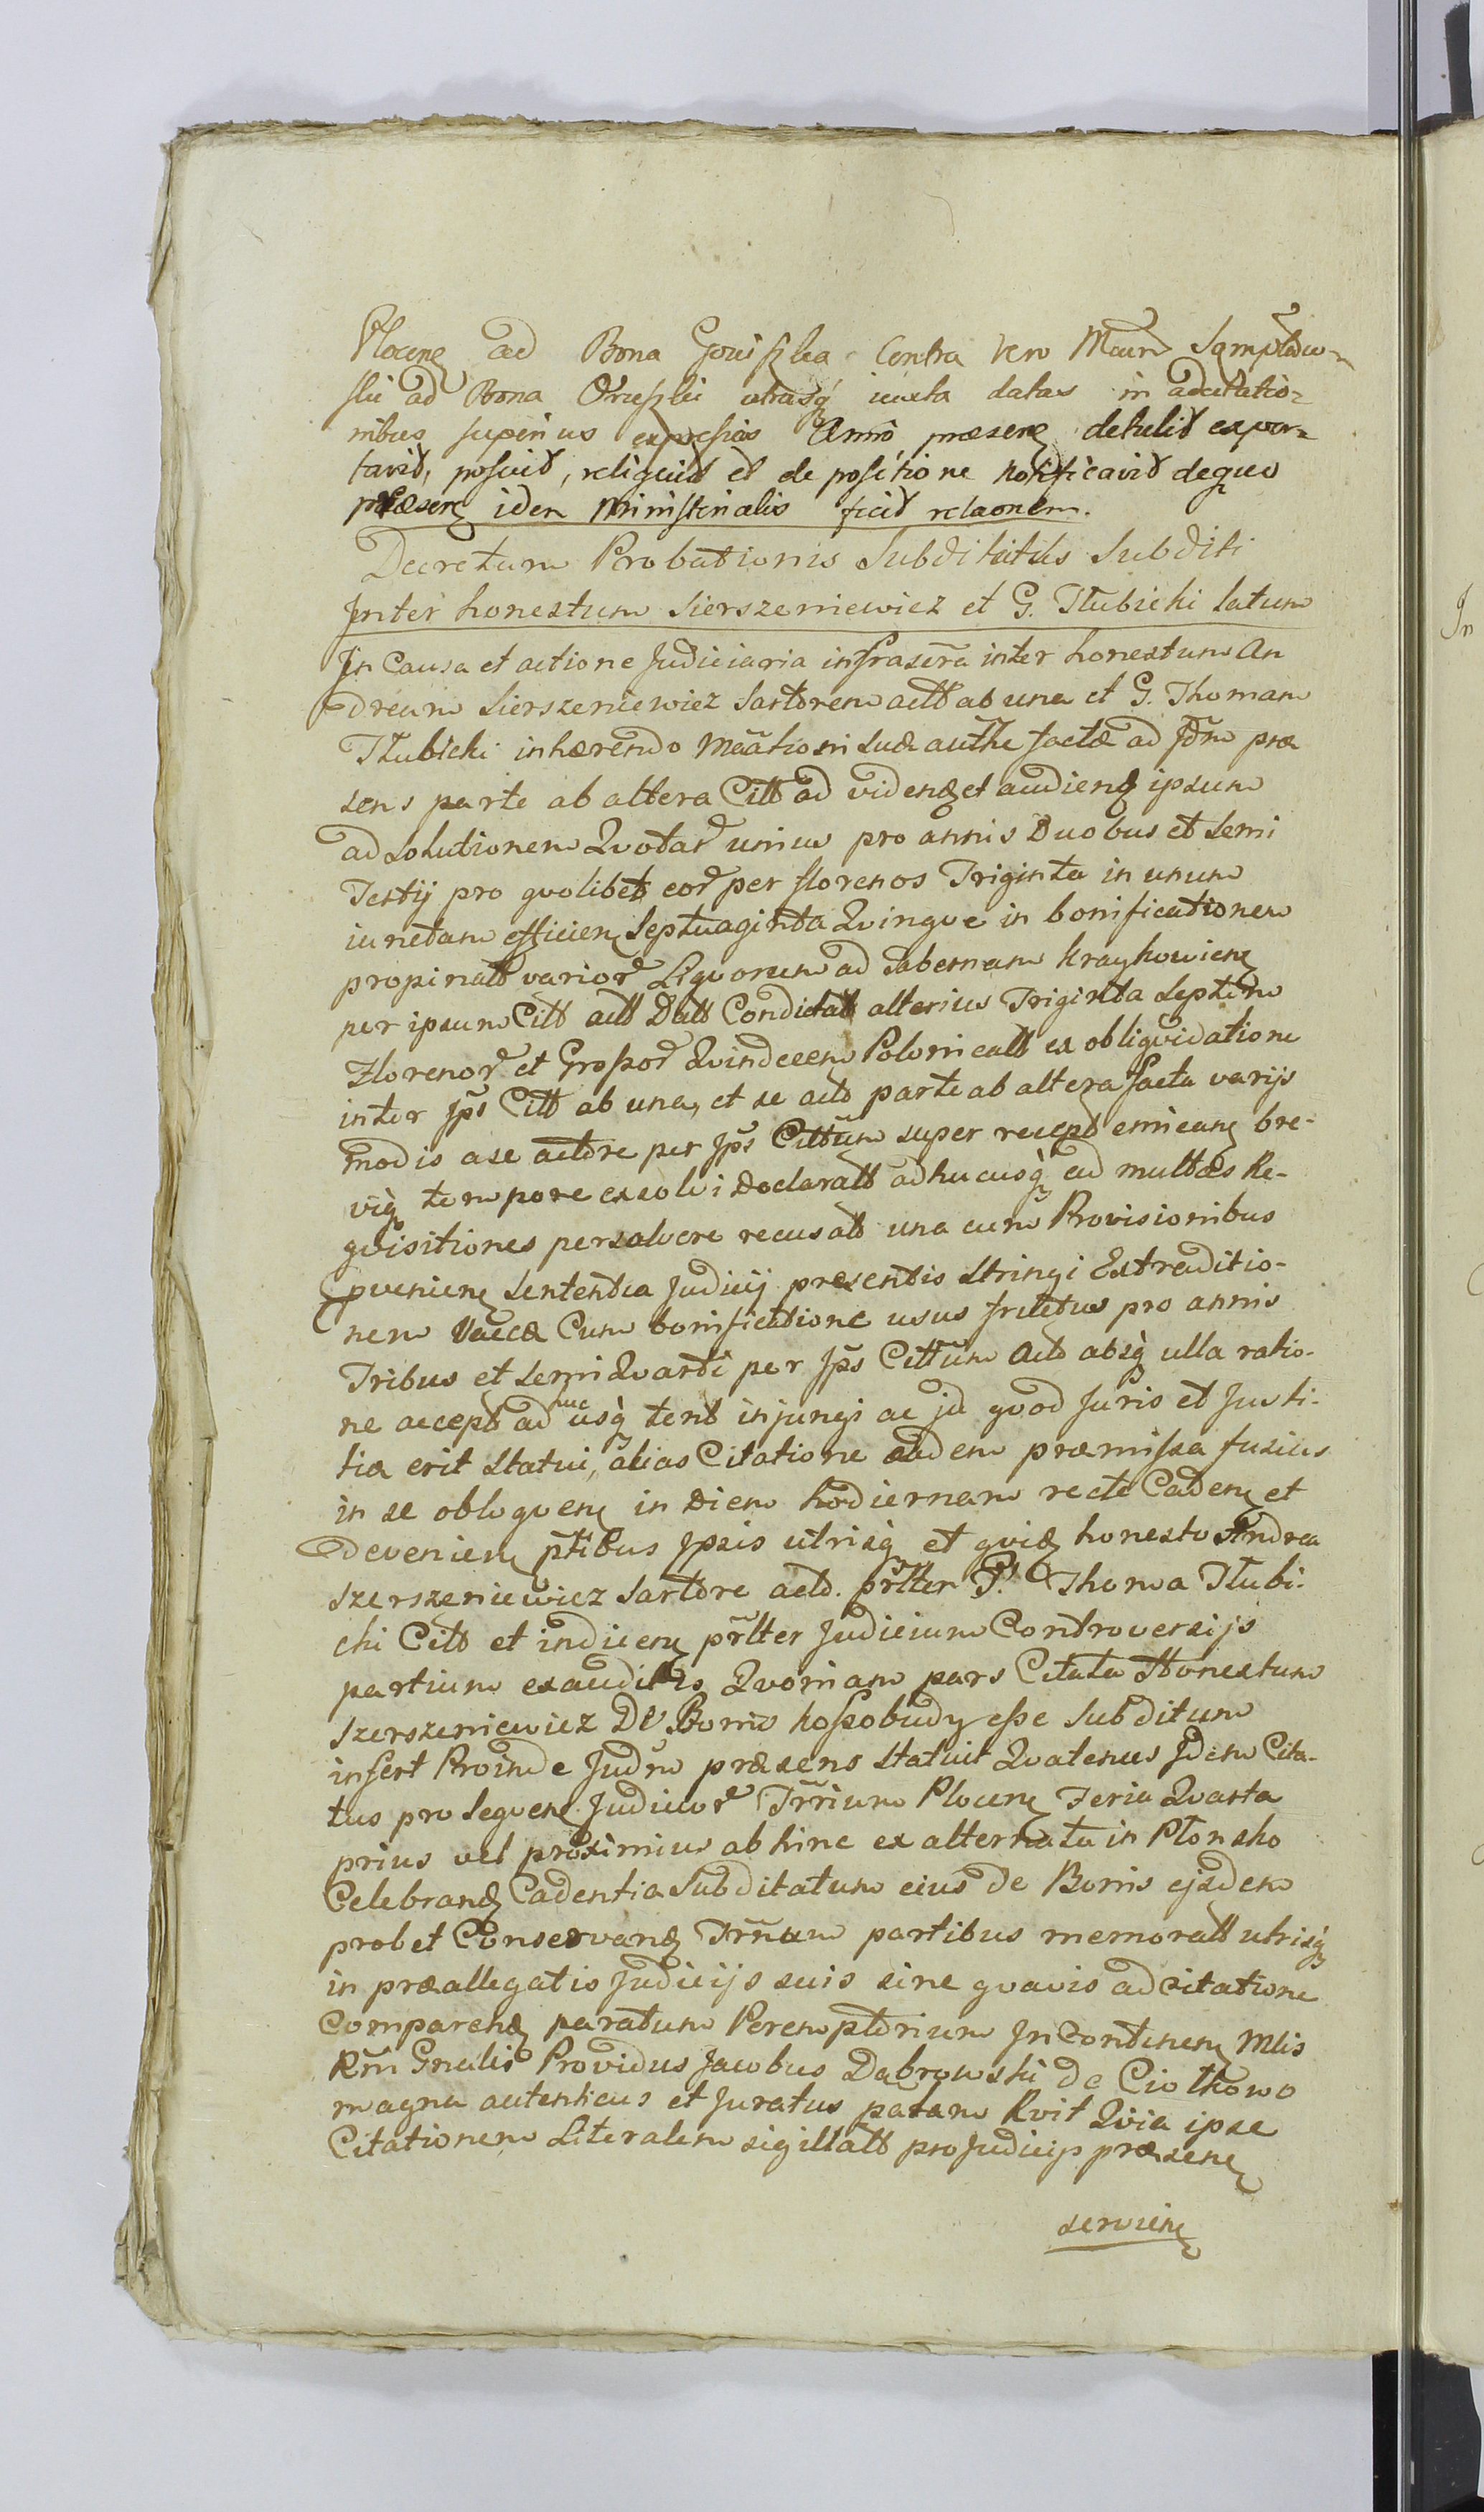 Plocen ad Bona Contra vero
ski ad Bona utrasq iuxta datas in adcitatio-
nibus superius expressas Anno præsen detulit expor-
tavit, posuit, reliquit et de positione notificavit deqvo
præsen idem Ministerialis fecit relaonem.
Decretum Probationis Subditatus Subditi
Inter honestum Sierszeniewicz et G. Tłubicki latum
In Causa et actione Judiciaria infrascra inter honestum An
dream Sierszeniewicz Sartorem actt ab una et G. Thomam
Tłubicki inhærendo suæ factæ ad Jdm præ
sens parte ab altera Citt ad videndet audiend ipsum
ad solutionem Qvotar unius pro annis Duobus et semi
Tertij pro qvolibet eor per florenos Triginta in unum
iunctam efficien Septuaginta Qvinqve in bonificationem
propinatt varior Liqvorum ad Tabernam kraykowien
per ipsum Citt actt Datt Condictatt alterius Triginta Septem
Florenor et Grossor Qvindecem Polonicatt ex obliqvidatione
inter Jps Citt ab una, et se actt parte ab altera facta varijs
modis a se actore per Jps Cittum super recept emican bre-
viq tempore exsolvi Declaratt adhucusq ad multas Re-
qvisitiones persolvere recusatt una cum Provisionibus
pvenien Sententia Judicij presentis Stringi Extraditio-
nem Vaccæ Cum bonificatione usus fructus pro annis
Tribus et semi Qvarti per Jps Cittum Actt absq ulla ratio-
ne accept ad huc usq tent injungi ac jd qvod Juris et Justi-
tiæ erit Statui, alias Citatione eadem præmissa fusius
in se obloqven in Diem hodiernam recte Caden et
Devenien ptibus Jpsis utrisq et qvid honesto Andrea
Szerszeniewicz Sartore actt. prlter G. Thoma Tłubi-
cki Citt et indicen prlter Judicium Controversijs
partium exauditis Qvoniam pars Citata Honestum
Szerszeniewicz De Bonis kossobudy esse Subditum
infert Proinde Judm præsens Statuit Qvatenus Jdem Cita-
tus pro Seqven Judicior Trrium Plocen Feria Qvarta
prius vel proximius abhinc ex alternata in Płonsko
Celebrand Cadentia Subditatum eius de Bonis ejsdem
probet Conservand Trnum partibus memoratt utrisq
in præallegatis Judicijs suis sine qvavis adcitatione
Comparend paratum Peremptorium Mlis
Rni Gnalis Providus Jacobus Dabrowski de Ciółkowo
magna autenticus et Juratus palam Rvit Qvia ipse
Citationem Literalem sigillatt pro Judicijs præsen
servien